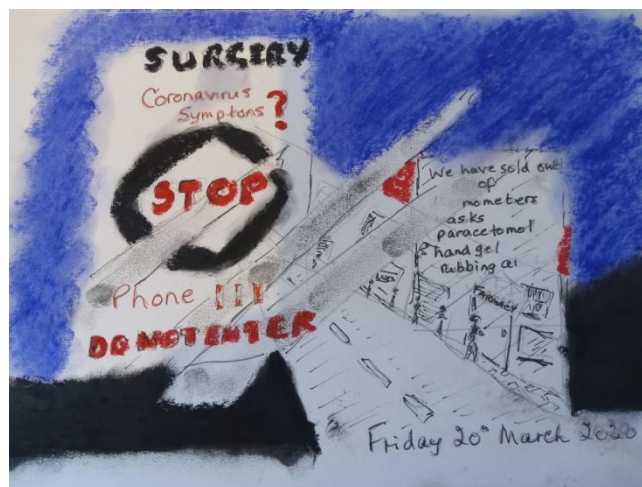 SURGERY
Coronavirus
Symptons ?
STOP
Phone !!!
DO NOT ENTER
We have sold out
of
mometers
asks
paracetomol
hand gel
Rubbing al
FARMACY
Friday 20th March 2020